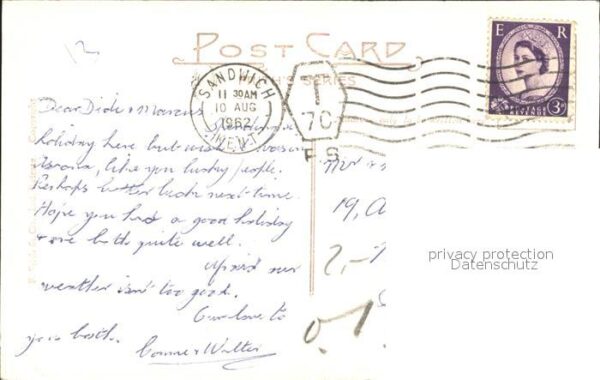 POST CARD
SERIES
E R
POSTAGE REVENUE
3D
SANDWICH
11 30AM
10 AUG
1962
KENT
T
70
F S
12
Dear Dick &
holiday here but wish
Ascona, like you lucky people.
Perhaps better luck next time.
Hope you had a good holiday
& are both quite well.
Afraid our
weather isn't too good.
Our love to
you both.
Connie & Walter
Mr &
19, A
2,-
0.1
privacy protection
Datenschutz